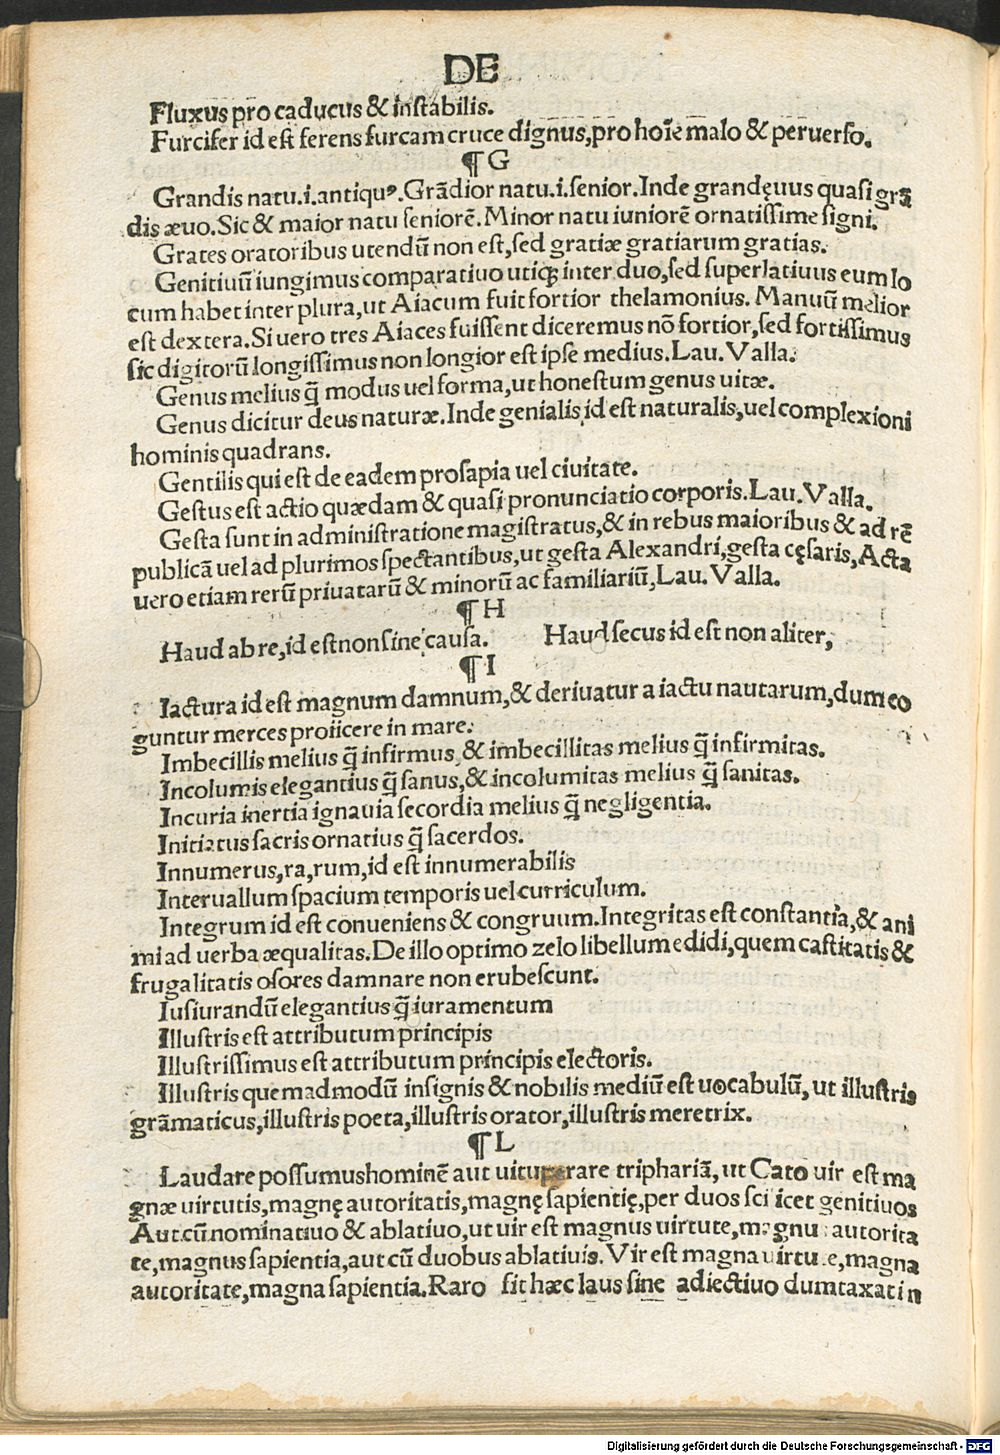 DE
Fluxus pro caducus & instabilis.
Furcifer id est ferens furcam cruce dignus,pro hoīe malo & peruerso.
¶ G
Grandis natu.i.antiquꝰ.Grādior natu.i.senior.Inde grandęuus quasi grā
dis æuo.Sic & maior natu seniorē.Minor natu iuniorē ornatissime signi.
Grates oratoribus utendū non est,sed gratiæ gratiarum gratias.
Genitiuū iungimus comparatiuo utiqꝫ inter duo,sed superlatiuus eum lo
cum habet inter plura,ut Aiacum fuit fortior thelamonius. Manuū melior
est dextera.Si uero tres Aiaces fuissent diceremus nō fortior,sed fortissimus
sic digitorū longissimus non longior est ipse medius.Lau.Valla.
Genus melius q̄ modus uel forma,ut honestum genus uitæ.
Genus dicitur deus naturæ.Inde genialis id est naturalis,uel complexioni
hominis quadrans.
Gentilis qui est de eadem prosapia uel ciuitate.
Gestus est actio quædam & quasi pronunciatio corporis.Lau.Valla.
Gesta sunt in administratione magistratus,& in rebus maioribus & ad rē
publicā uel ad plurimos spectantibus,ut gesta Alexandri,gesta cęsaris,Acta
uero etiam rerū priuatarū & minorū ac familiariū,Lau.Valla.
¶ H
Haud ab re,id est non sine causa. Haud secus id est non aliter,
¶ I
Iactura id est magnum damnum,& deriuatur a iactu nautarum,dum co
guntur merces proiicere in mare.
Imbecillis melius q̄ infirmus,& imbecillitas melius q̄ infirmitas.
Incolumis elegantius q̄ sanus,& incolumitas melius q̄ sanitas.
Incuria inertia ignauia secordia melius q̄ negligentia.
Initiatus sacris ornatius q̄ sacerdos.
Innumerus,ra,rum,id est innumerabilis
Interuallum spacium temporis uel curriculum.
Integrum id est conueniens & congruum.Integritas est constantia,& ani
mi ad uerba æqualitas.De illo optimo zelo libellum edidi,quem castitatis &
frugalitatis osores damnare non erubescunt.
Iusiurandū elegantius q̄ iuramentum
Illustris est attributum principis
Illustrissimus est attributum principis electoris.
Illustris quemadmodū insignis & nobilis mediū est uocabulū, ut illustris
grāmaticus,illustris poeta,illustris orator,illustris meretrix.
¶ L
Laudare possumus hominē aut uituperare triphariā, ut Cato uir est ma
gnæ uirtutis,magnę autoritatis,magnę sapientię,per duos scilicet genitiuos
Aut cū nominatiuo & ablatiuo,ut uir est magnus uirtute,magnus autorita
te,magnus sapientia,aut cū duobus ablatiuis. Vir est magna uirtute,magna
autoritate,magna sapientia.Raro sit hæc laus sine adiectiuo dumtaxat in
Digitalisierung gefördert durch die Deutsche Forschungsgemeinschaft - DFG